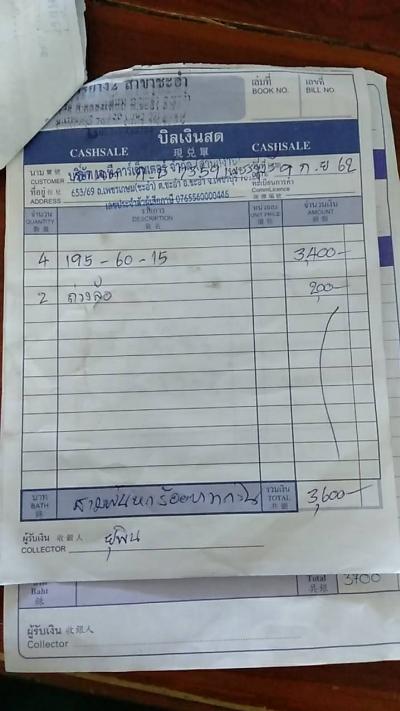 สาขาชะอำ
เล่มที่ เลขที่
BOOK NO. BILL NO.
บิลเงินสด
CASHSALE 現兑單 CASHSALE
นาม
CUSTOMER 9 ก.ย 62
ที่อยู่ 653/69 ถ.เพชรเกษม(ชะอำ) ต.ชะอำ อ.ชะอำ จ.เพชรบุรี ทะเบียนการค้า
ADDRESS เลขประจำตัวผู้เสียภาษี 0765560000446
จำนวน รายการ หน่วยละ จำนวนเงิน
QUANTITY DESCRIPTION UNIT PRICE AMOUNT
4 195-60-15 3,400-
2 ถ่วงล้อ 200-
บาท สามพันหกร้อยบาทถ้วน รวมเงิน
BATH TOTAL 3,600-
ผู้รับเงิน 收銀人
COLLECTOR ยุพิน
Baht Total 3700
ผู้รับเงิน 收銀人
Collector